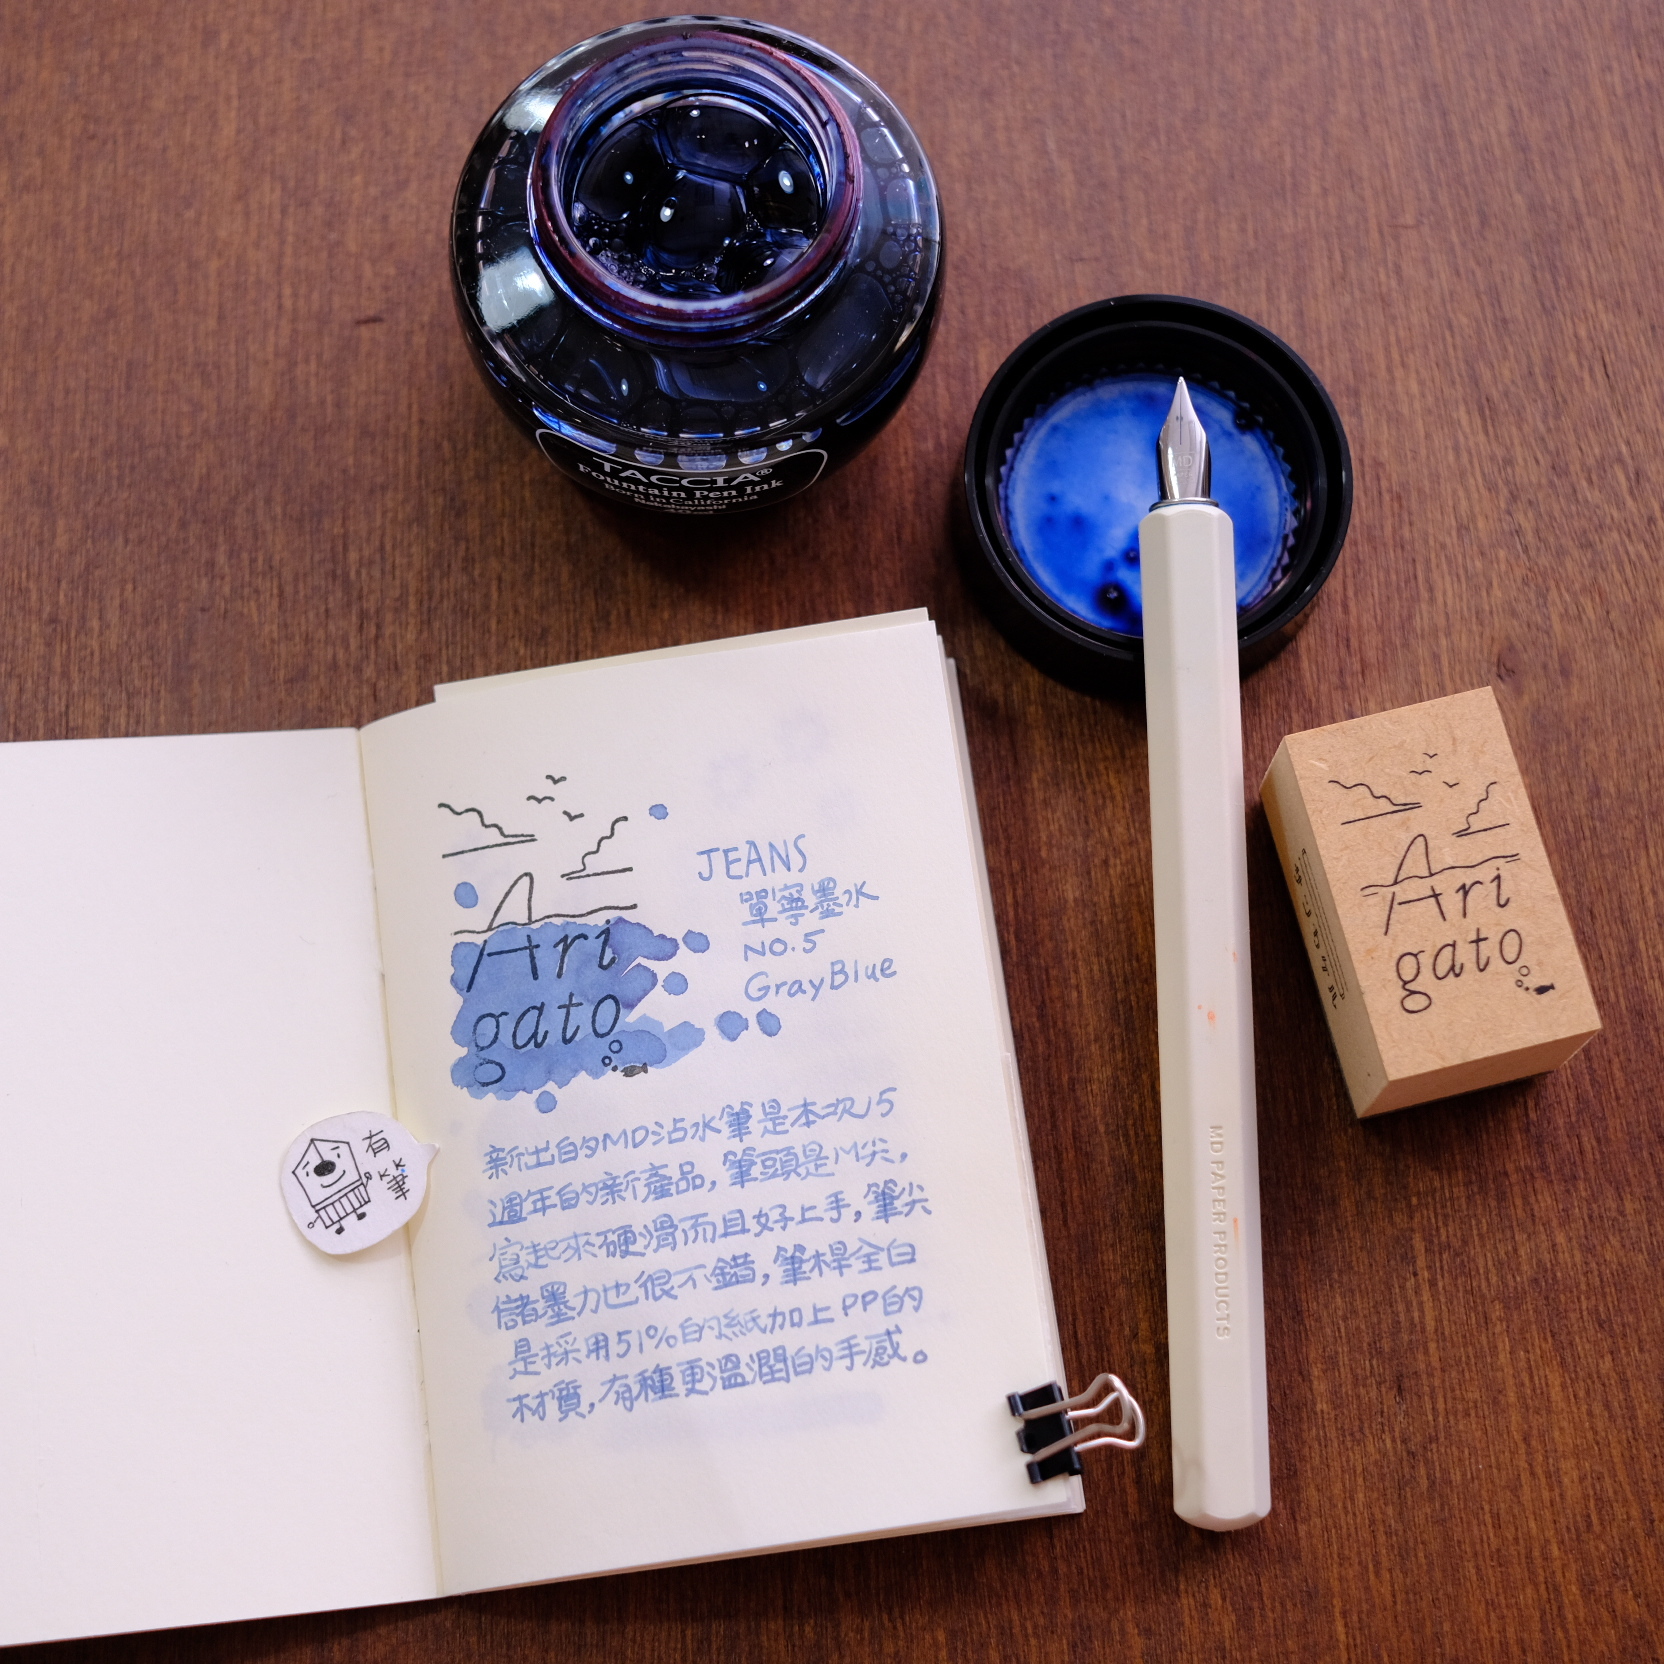 TACCIA®
Fountain Pen Ink
Born in California
Nakabayashi
40ml
MD
JEANS
單寧墨水
NO.5
GrayBlue
Ari
gato
新出的MD沾水筆是本次15
週年的新產品,筆頭是M尖,
寫起來硬滑而且好上手,筆尖
儲墨力也很不錯,筆桿全白
是採用51%的紙加上PP的
材質,有種更溫潤的手感。
有
KK
筆
Ari
gato
MD PAPER PRODUCTS